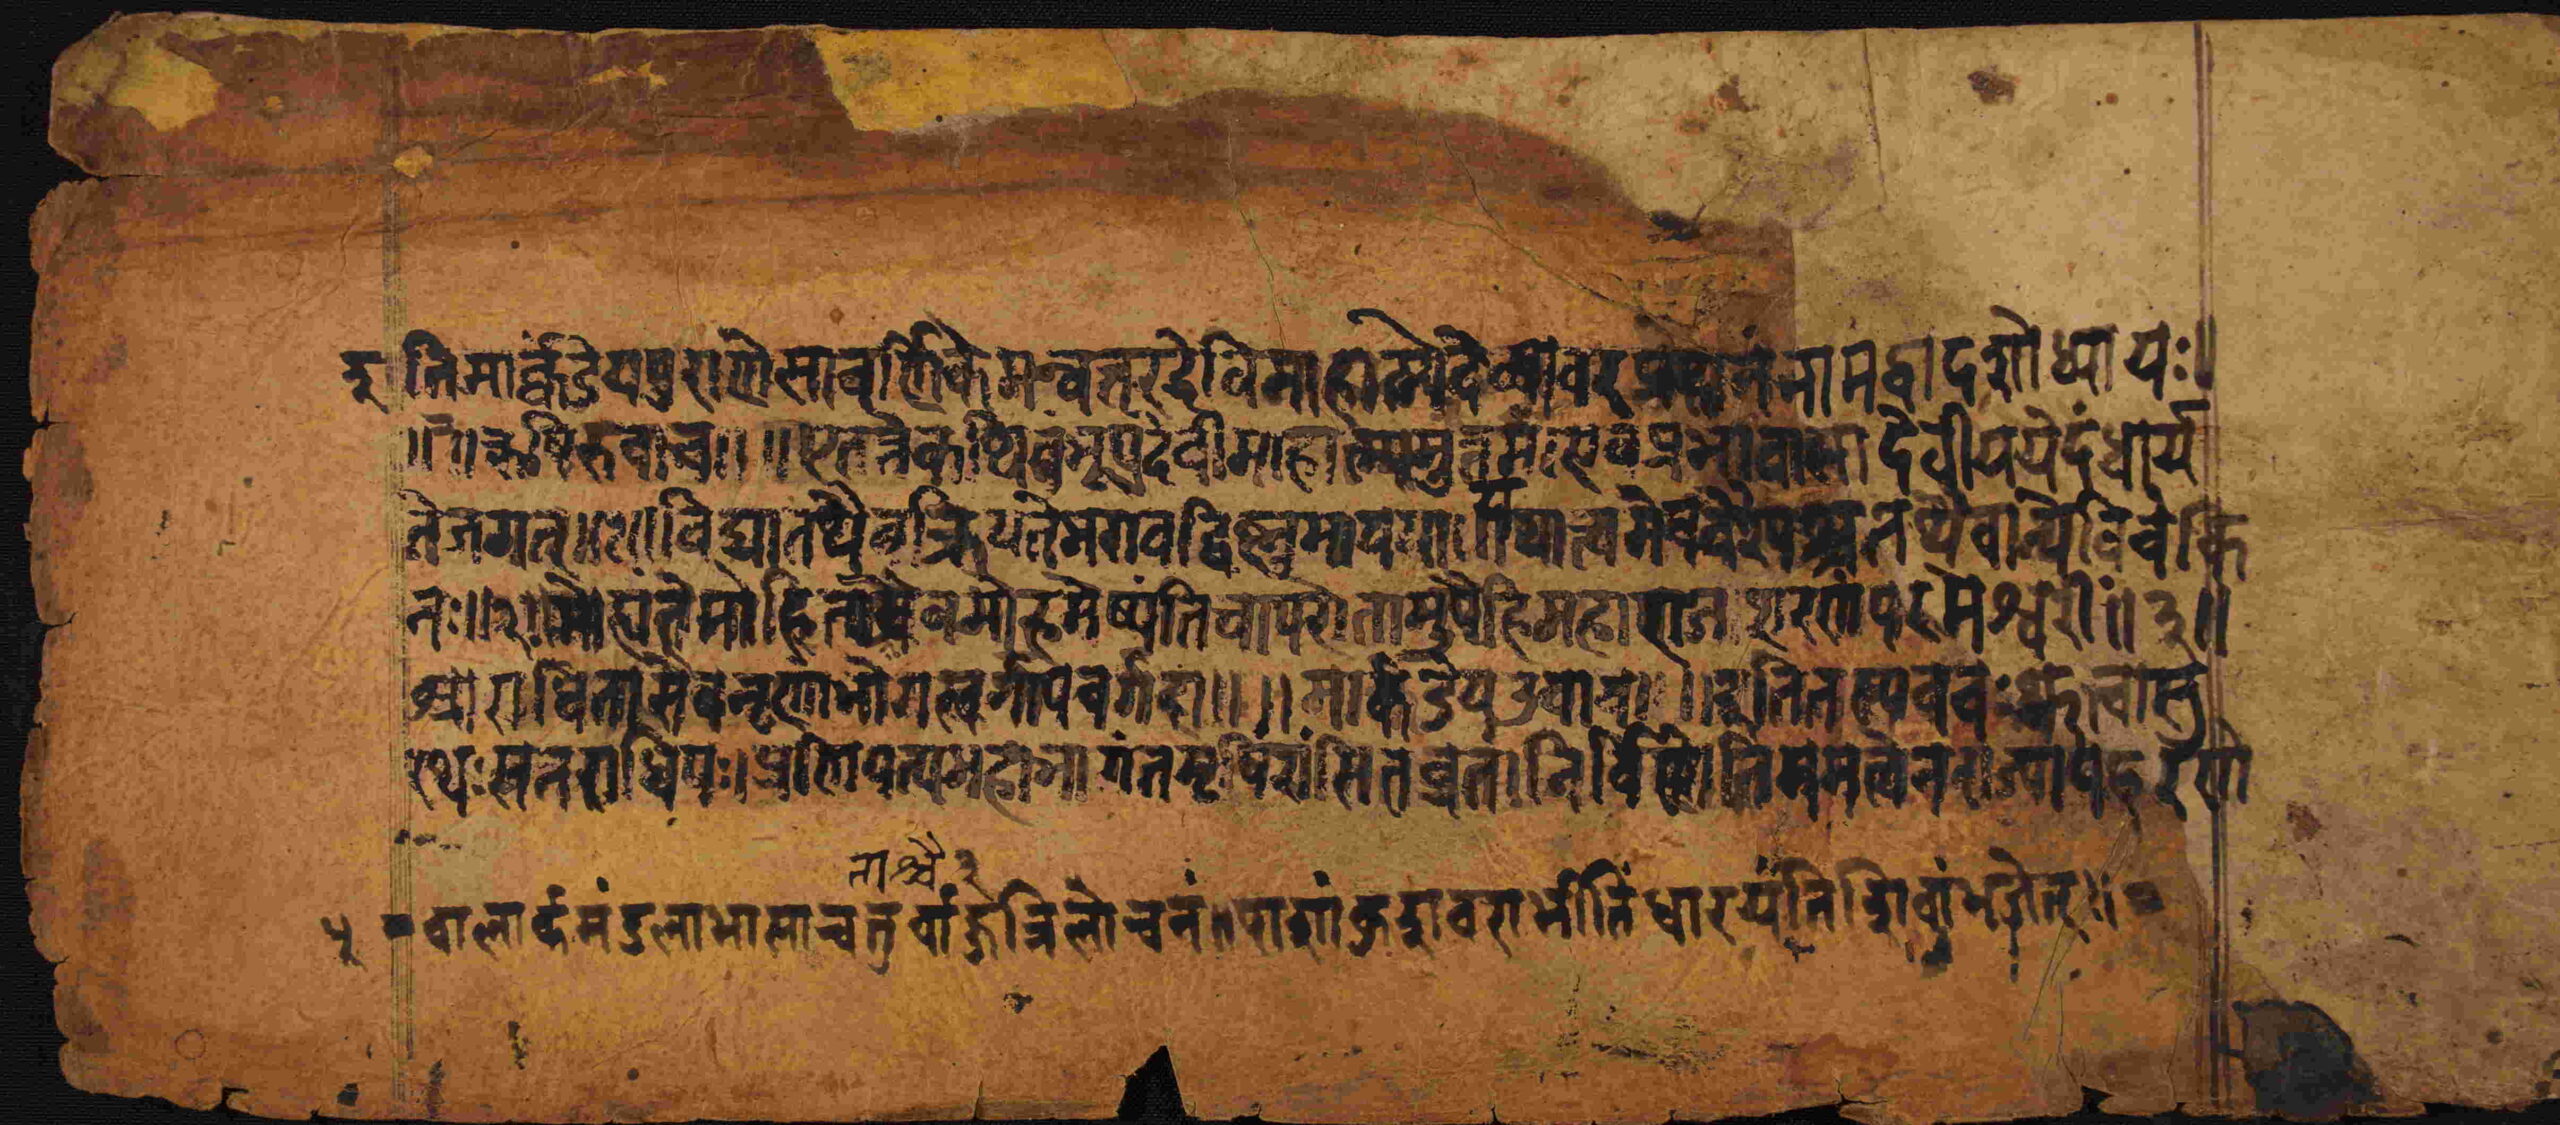 इतिमार्क्कंडेयपुराणेसावर्णिकेमन्वन्तरदेविमाहात्म्येदेव्यावरप्रदानंनामद्वादशोध्यायः॥
॥ऋषिरुवाच॥ ॥एतत्तेकथितंभूपदेवीमाहात्म्यमुत्तमं।एवंप्रभावासादेवीययेदंधार्य
तेजगत्॥१॥विद्यातथैवक्रियतेभगवद्विष्णुमायया।तयात्वमेववैश्यश्चतथैवान्येविवेकि
नः॥२॥मोह्यंतेमोहिताश्चैवमोहमेष्यंतिचापरे।तामुपैहिमहाराजशरणंपरमेश्वरीं॥३॥
आराधितासैवनृणांभोगस्वर्गापवर्गदा॥ ॥मार्कंडेयउवाच॥ ॥इतितस्यवचःश्रुत्वासु
रथःसनराधिपः।प्रणिपत्यमहाभागंतमृषिंशंसितव्रतं।निर्विण्णोतिममत्वेनराज्यापहरणे
नाश्चै३
५ बालार्कमंडलाभासाचतुर्वांहुत्रिलोचनं॥पाशांकुशवराभीतिंधारयंतिशिवांभजेत्॥